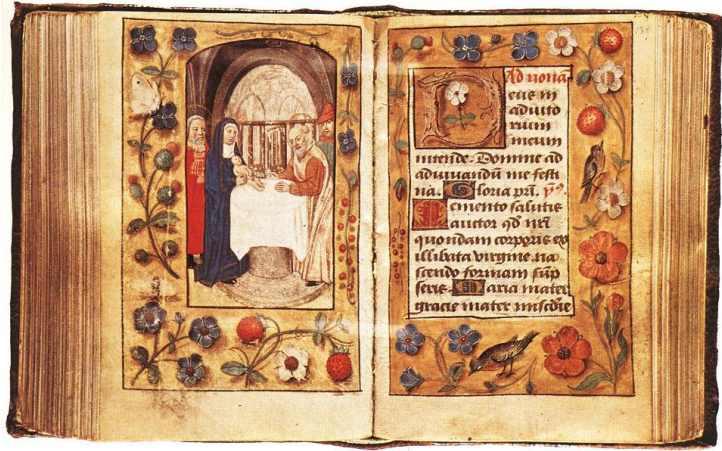 Ad nonā
Deus in
adiuto
rium
meum
intende. Domine ad
adiuvandū me festi
na. Gloria pri. ps.
Memento salutis
auctor qd nri
quondam corporis ex
illibata virgine na
scendo formam sup
seris. Maria mater
gracie mater miscdie